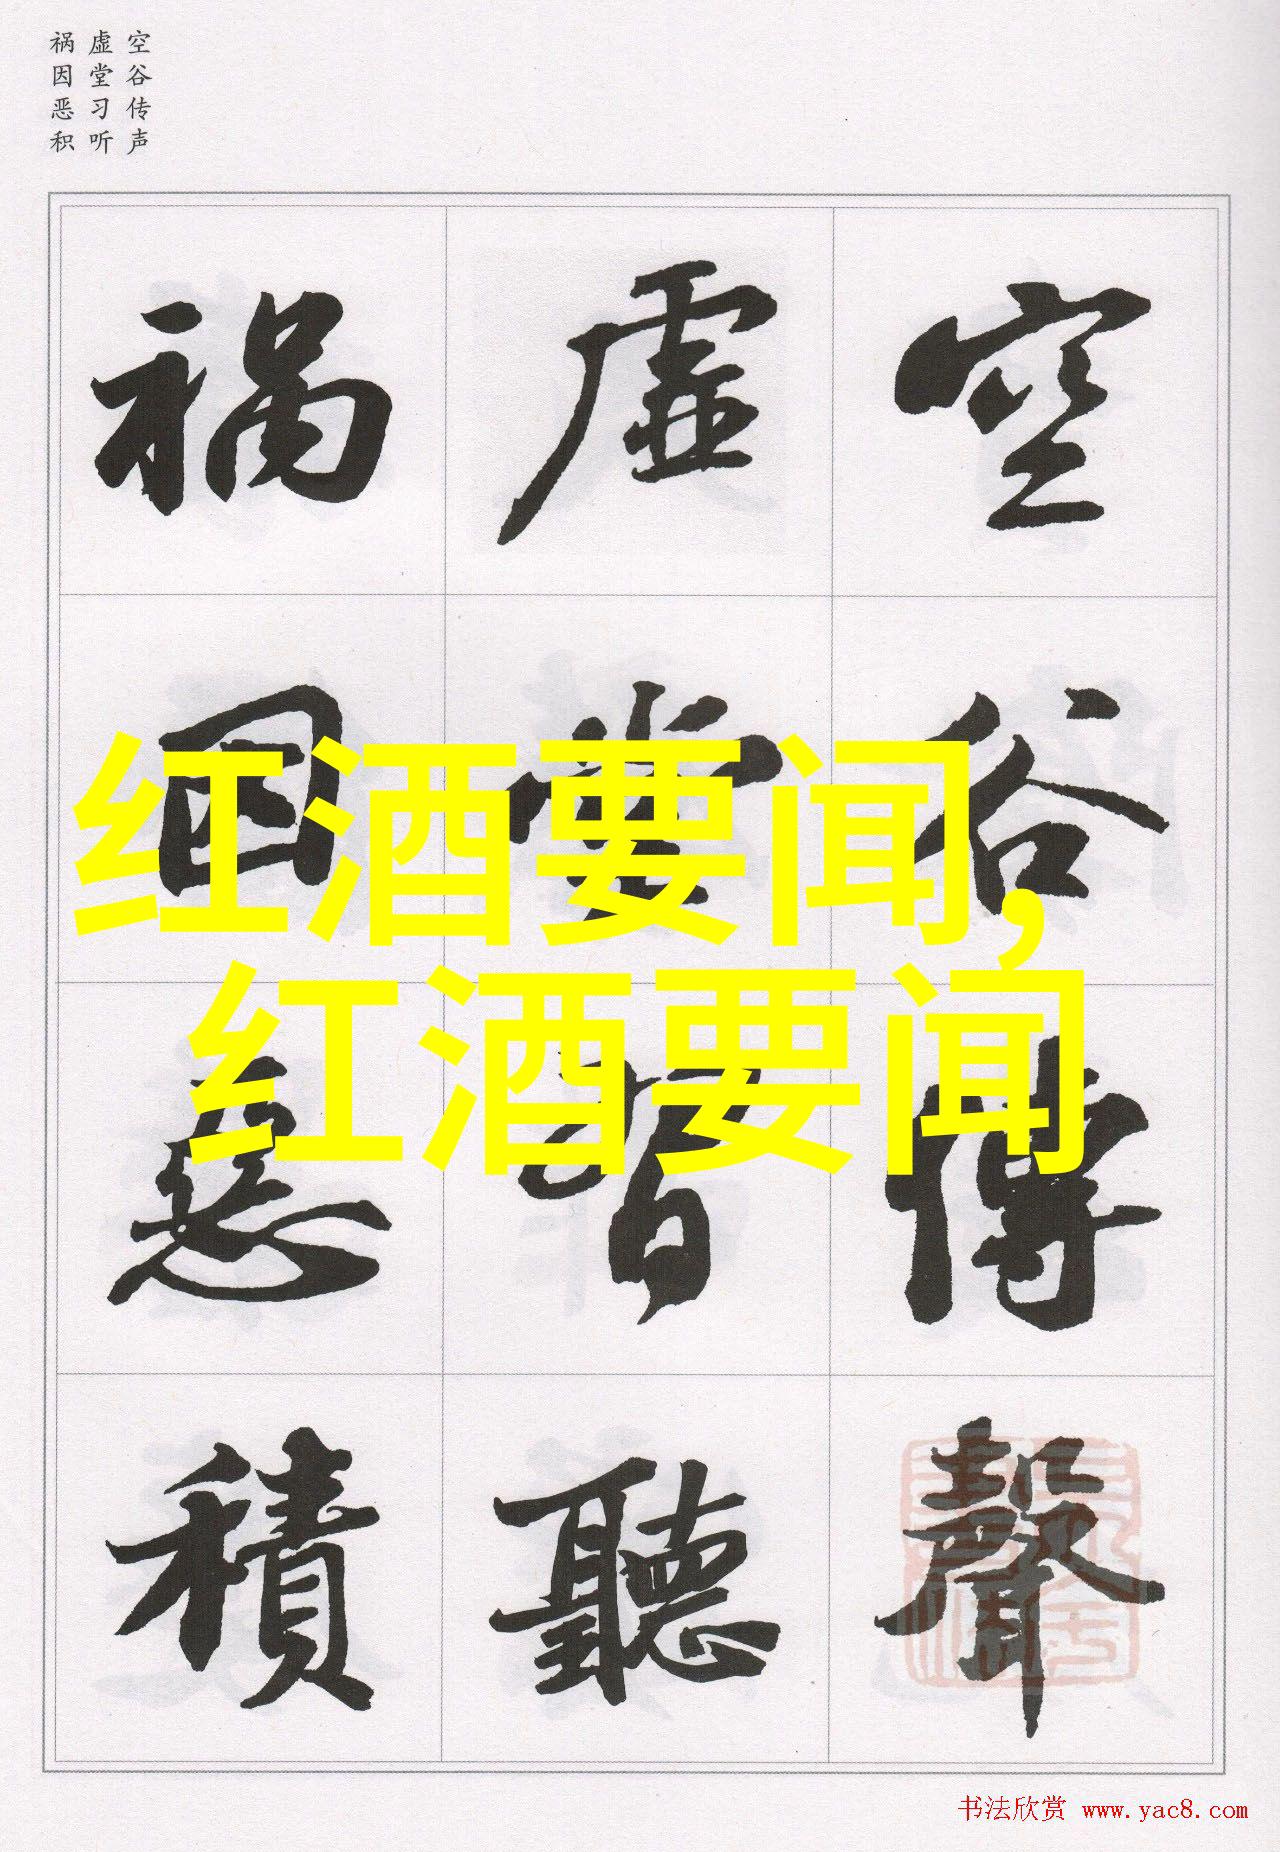 空谷传声
虚堂习听
祸因恶积
空谷傳聲
虚堂習聽
禍因惡積
红酒要闻,
红酒要闻
书法欣赏 www.yac8.com